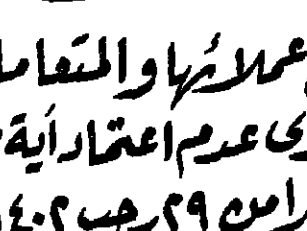 عملائها والمتعاملـ
ـرى عدم اعتماد أية
ـرا من ٢٩ رجب ١٤٠٢